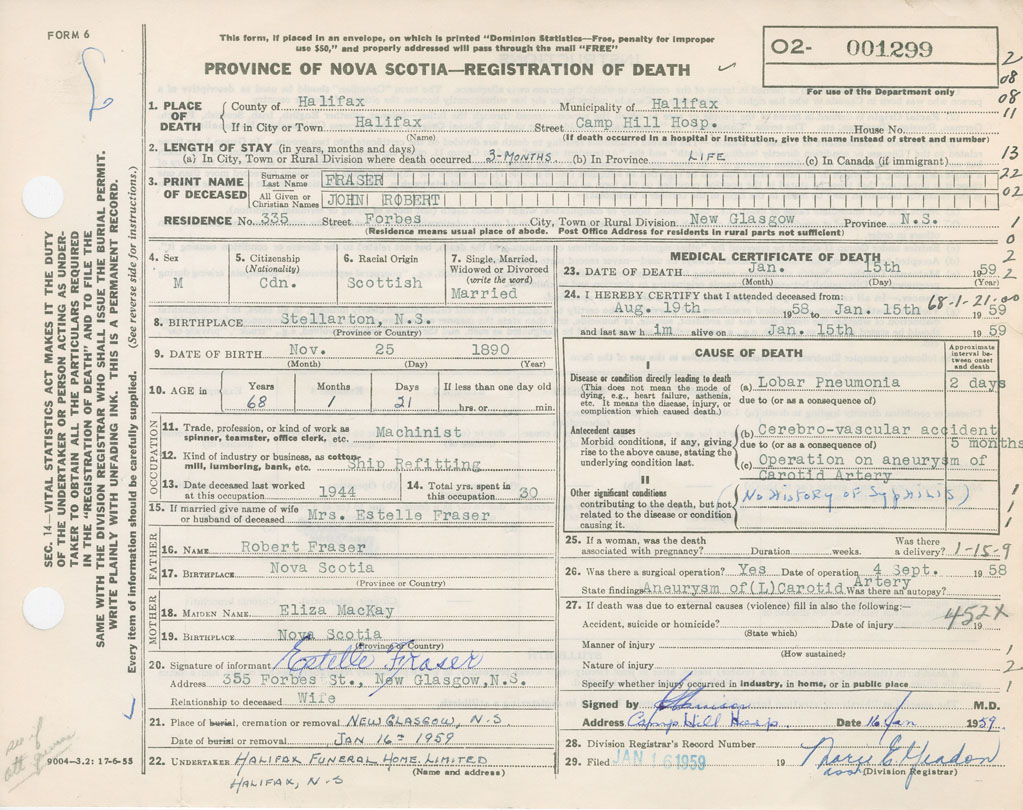 FORM 6
This form, if placed in an envelope, on which is printed "Dominion Statistics—Free, penalty for improper
use $50," and properly addressed will pass through the mail "FREE"
PROVINCE OF NOVA SCOTIA—REGISTRATION OF DEATH
02- 001299
For use of the Department only
2
08
08
11
13
22
02
1
0
2
2
SEC. 14—VITAL STATISTICS ACT MAKES IT THE DUTY
OF THE UNDERTAKER OR PERSON ACTING AS UNDER-
TAKER TO OBTAIN ALL THE PARTICULARS REQUIRED
IN THE "REGISTRATION OF DEATH" AND TO FILE THE
SAME WITH THE DIVISION REGISTRAR WHO SHALL ISSUE THE BURIAL PERMIT.
WRITE PLAINLY WITH UNFADING INK. THIS IS A PERMANENT RECORD.
Every item of Information should be carefully supplied. (See reverse side for instructions.)
1. PLACE OF DEATH
County of Halifax Municipality of Halifax
If in City or Town Halifax Street Camp Hill Hosp. House No.
(Name) (If death occurred in a hospital or institution, give the name instead of street and number)
2. LENGTH OF STAY (in years, months and days)
(a) In City, Town or Rural Division where death occurred 3-MONTHS (b) In Province LIFE (c) In Canada (if immigrant)
3. PRINT NAME OF DECEASED
Surname or Last Name FRASER
All Given or Christian Names JOHN ROBERT
RESIDENCE No. 335 Street Forbes City, Town or Rural Division New Glasgow Province N.S.
(Residence means usual place of abode. Post Office Address for residents in rural parts not sufficient)
4. Sex
M
5. Citizenship
(Nationality)
Cdn.
6. Racial Origin
Scottish
7. Single, Married,
Widowed or Divorced
(write the word)
Married
8. BIRTHPLACE Stellarton, N.S.
(Province or Country)
9. DATE OF BIRTH Nov. 25 1890
(Month) (Day) (Year)
10. AGE in Years Months Days If less than one day old
68 1 21 hrs. or min.
OCCUPATION
11. Trade, profession, or kind of work as
spinner, teamster, office clerk, etc. Machinist
12. Kind of industry or business, as cotton-
mill, lumbering, bank, etc. Ship Refitting
13. Date deceased last worked
at this occupation 1944
14. Total yrs. spent in
this occupation 30
15. If married give name of wife
or husband of deceased Mrs. Estelle Fraser
FATHER
16. NAME Robert Fraser
17. BIRTHPLACE Nova Scotia
(Province or Country)
MOTHER
18. MAIDEN NAME Eliza MacKay
19. BIRTHPLACE Nova Scotia
(Province or Country)
20. Signature of informant Estelle Fraser
Address 355 Forbes St., New Glasgow, N.S.
Relationship to deceased Wife
21. Place of burial, cremation or removal NEW GLASGOW, N.S
Date of burial or removal JAN 16TH 1959
22. UNDERTAKER HALIFAX FUNERAL HOME LIMITED
(Name and address)
HALIFAX, N.S
9004—3.2: 17-6-55
MEDICAL CERTIFICATE OF DEATH
23. DATE OF DEATH Jan. 15th 1959
(Month) (Day) (Year)
24. I HEREBY CERTIFY that I attended deceased from: 68-1-21-00
Aug. 19th 1958 to Jan. 15th 1959
and last saw him alive on Jan. 15th 1959
CAUSE OF DEATH
Approximate
interval be-
tween onset
and death
I
Disease or condition directly leading to death
(This does not mean the mode of
dying, e.g., heart failure, asthenia,
etc. It means the disease, injury, or
complication which caused death.)
(a) Lobar Pneumonia 2 days
due to (or as a consequence of)
Antecedent causes
Morbid conditions, if any, giving
rise to the above cause, stating the
underlying condition last.
(b) Cerebro-vascular accident
due to (or as a consequence of) 5 months
(c) Operation on aneurysm of
Carotid Artery
II
Other significant conditions
contributing to the death, but not
related to the disease or condition
causing it.
(No HISTORY OF SYPHILIS)
1
1
1
25. If a woman, was the death
associated with pregnancy? Duration weeks. Was there
a delivery? 1-15-9
26. Was there a surgical operation? Yes Date of operation 4 Sept. 1958
State findings Aneurysm of (L) Carotid Artery Was there an autopsy?
27. If death was due to external causes (violence) fill in also the following:—
Accident, suicide or homicide? Date of injury 19
(State which)
452X
Manner of injury 1
(How sustained)
Nature of injury 2
Specify whether injury occurred in industry, in home, or in public place 1
Signed by M.D.
Address Camp Hill Hosp Date 16 Jan 1959
28. Division Registrar's Record Number
29. Filed JAN 16 1959 19
(Division Registrar)